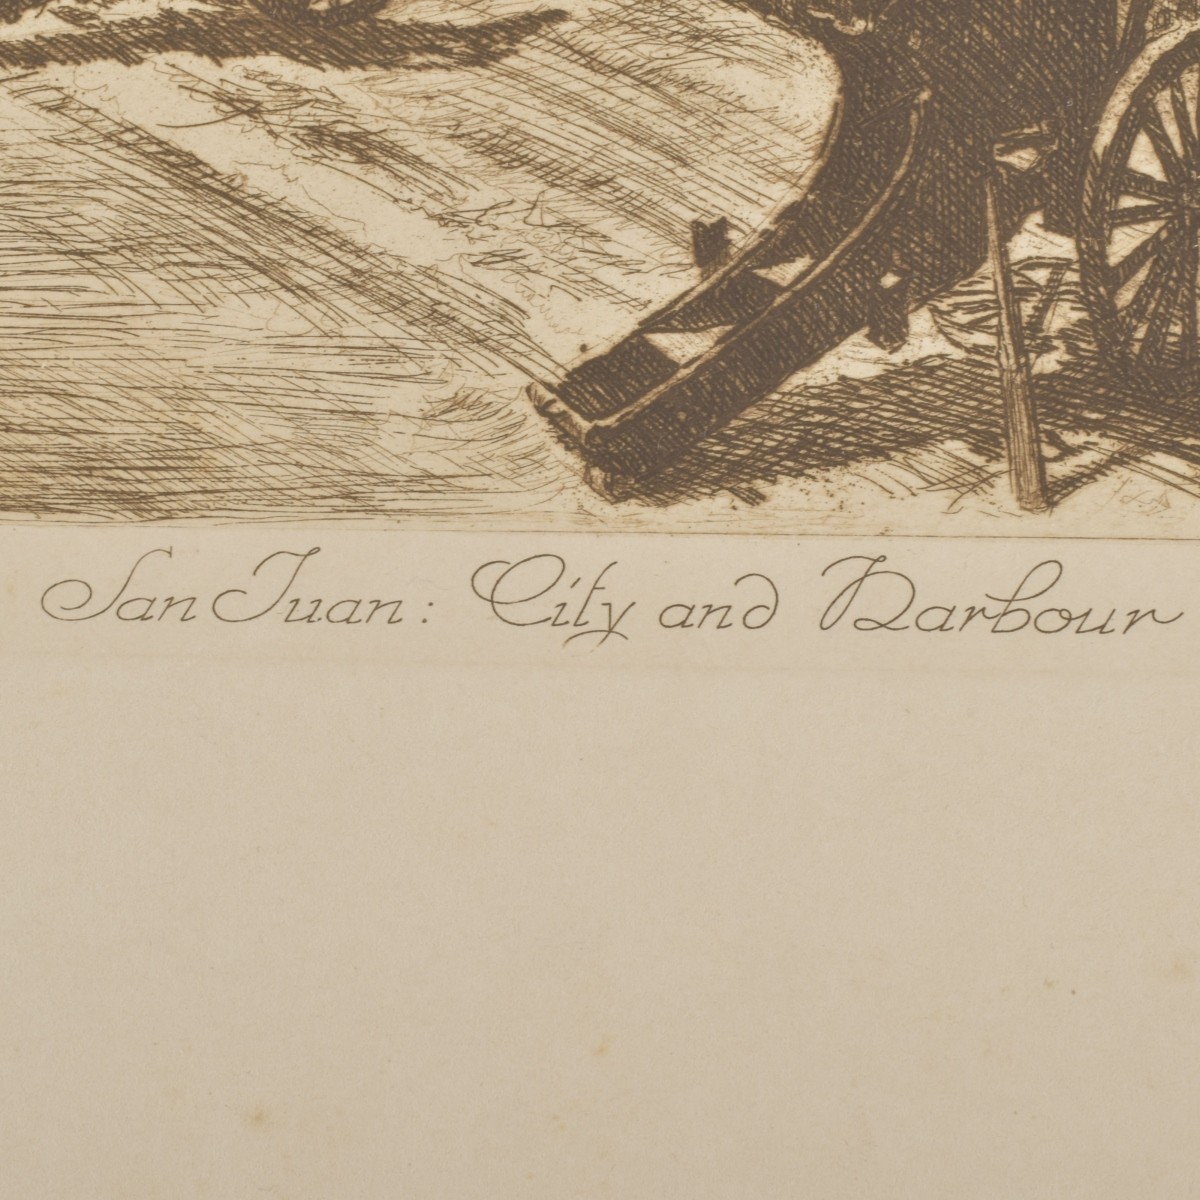 San Juan: City and Harbour